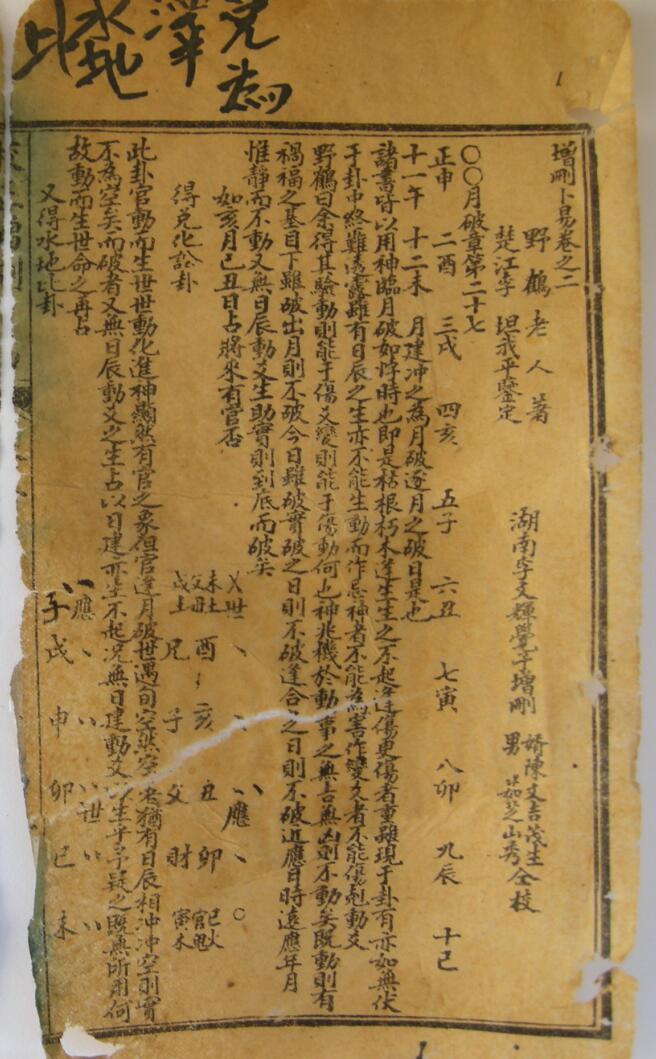 兌為澤
水地比
增刪卜易卷之二
野鶴老人著
楚江李坦我平鑒定
湖南李文輝覺子增刪
婿陳文吉茂生
男茹芝山秀仝校
〇〇月破章第二十七
正申 二酉 三戌 四亥 五子 六丑 七寅 八卯 九辰 十巳
十一午 十二未 月建冲之為月破逐月之破日是也
諸書皆以用神臨月破如悖時也即是枯根朽木逢生生之不起逢傷更傷者重雖現于卦有亦如無伏
于卦中終難透露雖有日辰之生亦不能生動而作忌神者不能為害作變爻者不能傷剋動爻
野鶴曰余得其驗動則能于傷爻變則能于傷動何也神兆機於動事之無吉無凶則不動矣既動則有
禍福之基目下雖破出月則不破今日雖破實破之日則不破逢合之日則不破近應日時遠應年月
惟靜而不動又無日辰動爻生助實則到底而破矣
如亥月己丑日占將來有官否
得兌化訟卦
乂世、、〃應、〇
未土 酉 亥 丑 卯 巳火
父母 官鬼
戌土 兄 子 父 財 寅木
此卦官動而生世世動化進神顯然有官之象但官逢月破世遇旬空然空者猶有日辰相冲冲空則實
不為空矣而破者又無日辰動爻之生占以日建亦生不起况無日建動爻以生乎予疑之既無所用何
故動而生世命之再占
又得水地比卦
〃應、〃〃世〃〃
子 戌 申 卯 巳 未